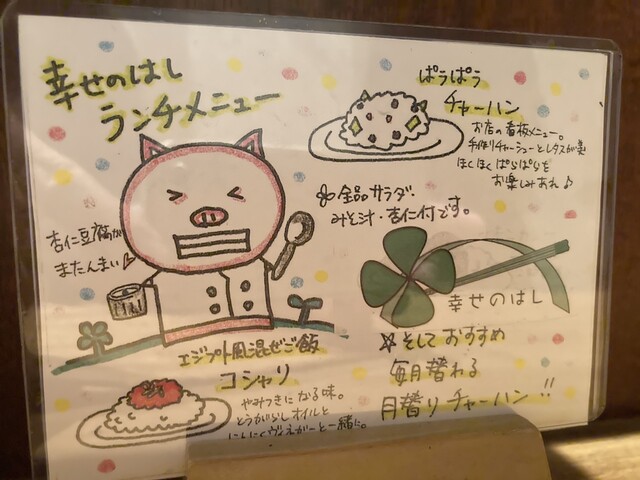 幸せのはし
ランチメニュー
ぱらぱら
チャーハン
お店の看板メニュー。
手作りチャーシューとレタスが美
ほくほくぱらぱらを
お楽しみあれ♪
※全品サラダ・
みそ汁・杏仁付です。
杏仁豆腐が
またんまい♪
幸せのはし
エジプト風混ぜご飯
コシャリ
やみつきになる味。
とうがらしオイルと
にんにくヴィネガーと一緒に。
※そしておすすめ
毎月替わる
月替りチャーハン!!